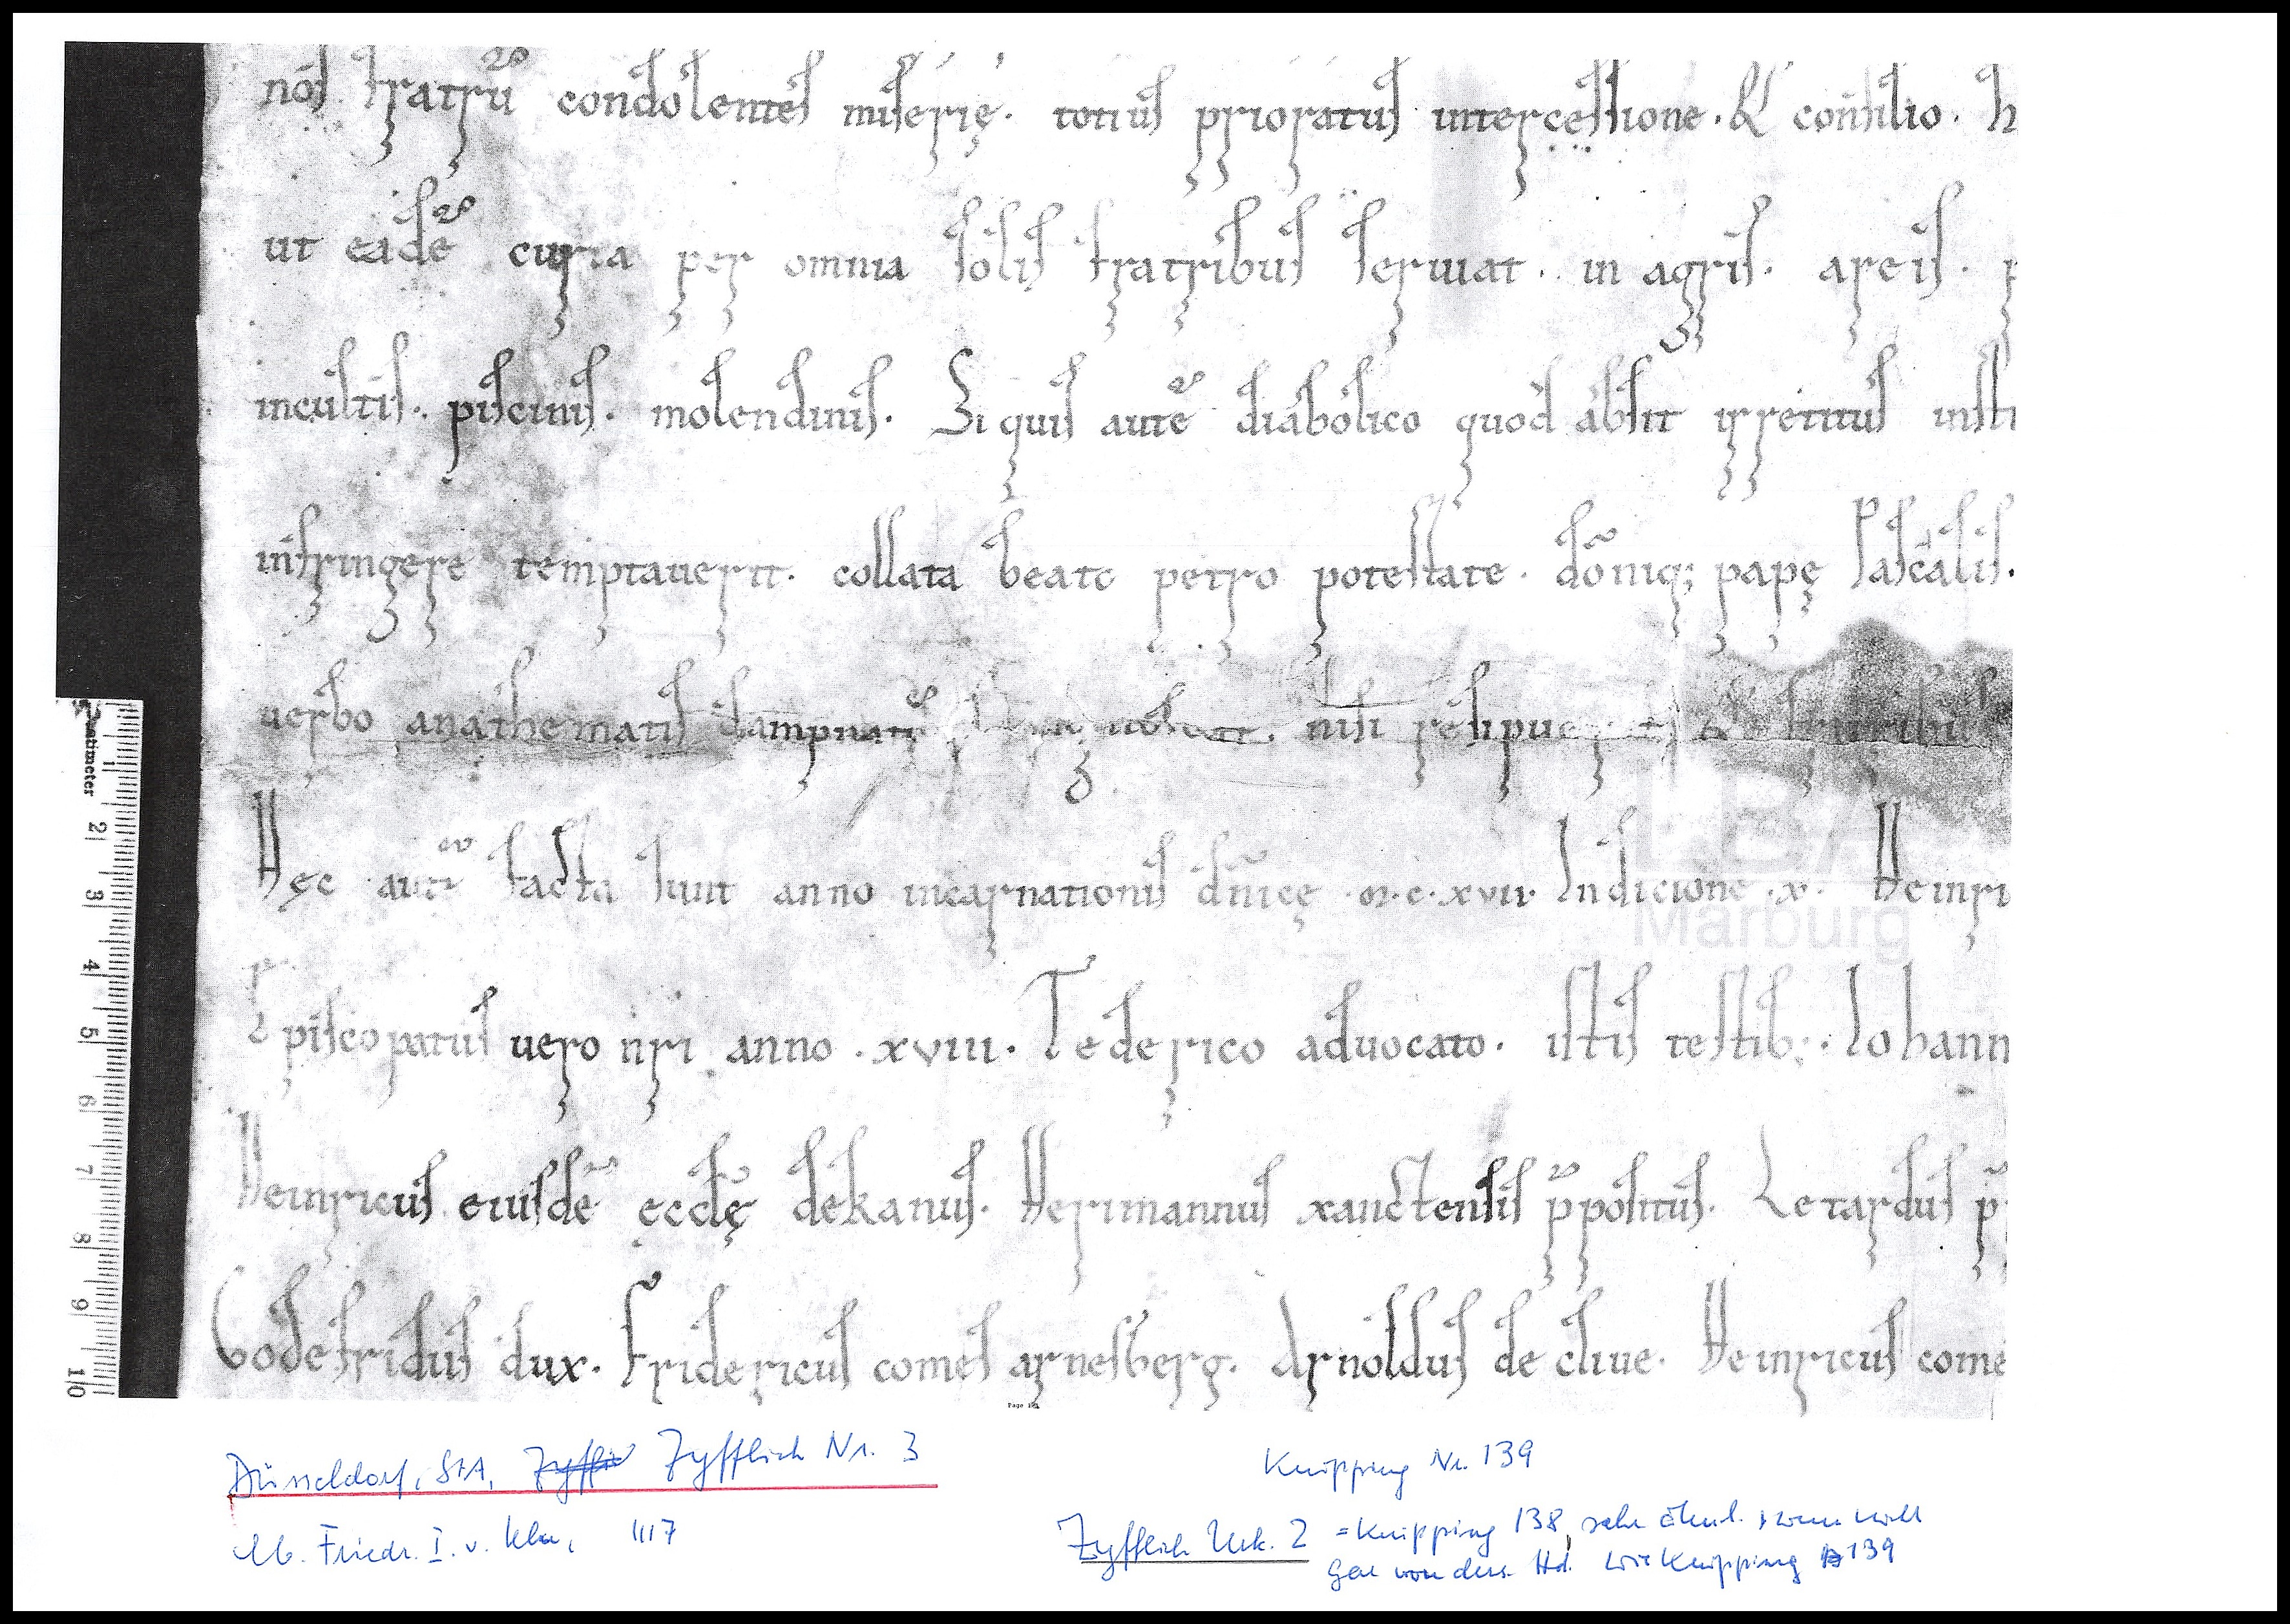 nos fratrū condolentes miserię. totius prioratus intercessione. & consilio. h
ut eadē curia per omnia solis fratribus seruiat. in agris. areis. p
incultis. piscinis. molendinis. Si quis autē diabolico quod absit irretitus insti
infringere temptauerit. collata beato petro potestate. dōniq; papę Pascalis.
uerbo anathematis dampnatū nisi resipuerit & fratribus
Hęc autē facta sunt anno incarnationis dn̄icę .m.c.xvii. Indicione .x. Heinri
Episcopatus uero nr̄i anno .xviii. Tederico aduocato. istis testib;. Iohann
Heinricus eiusdē ęcclę dekanus. Herimannus xanctensis p̄positus. Letardus p̄
Godefridus dux. Fridericus comes arnesberg. Arnoldus de cliue. Heinricus come
Zentimeter
1 2 3 4 5 6 7 8 9 10
Marburg
Düsseldorf, StA, Zyfflich Nr. 3
Eb. Friedr. I. v. Köln, 1117
Knipping Nr. 139
Zyfflich Urk. 2 = Knipping 138, sehr ähnl. wenn nicht
gar von ders. Hd. wie Knipping 139